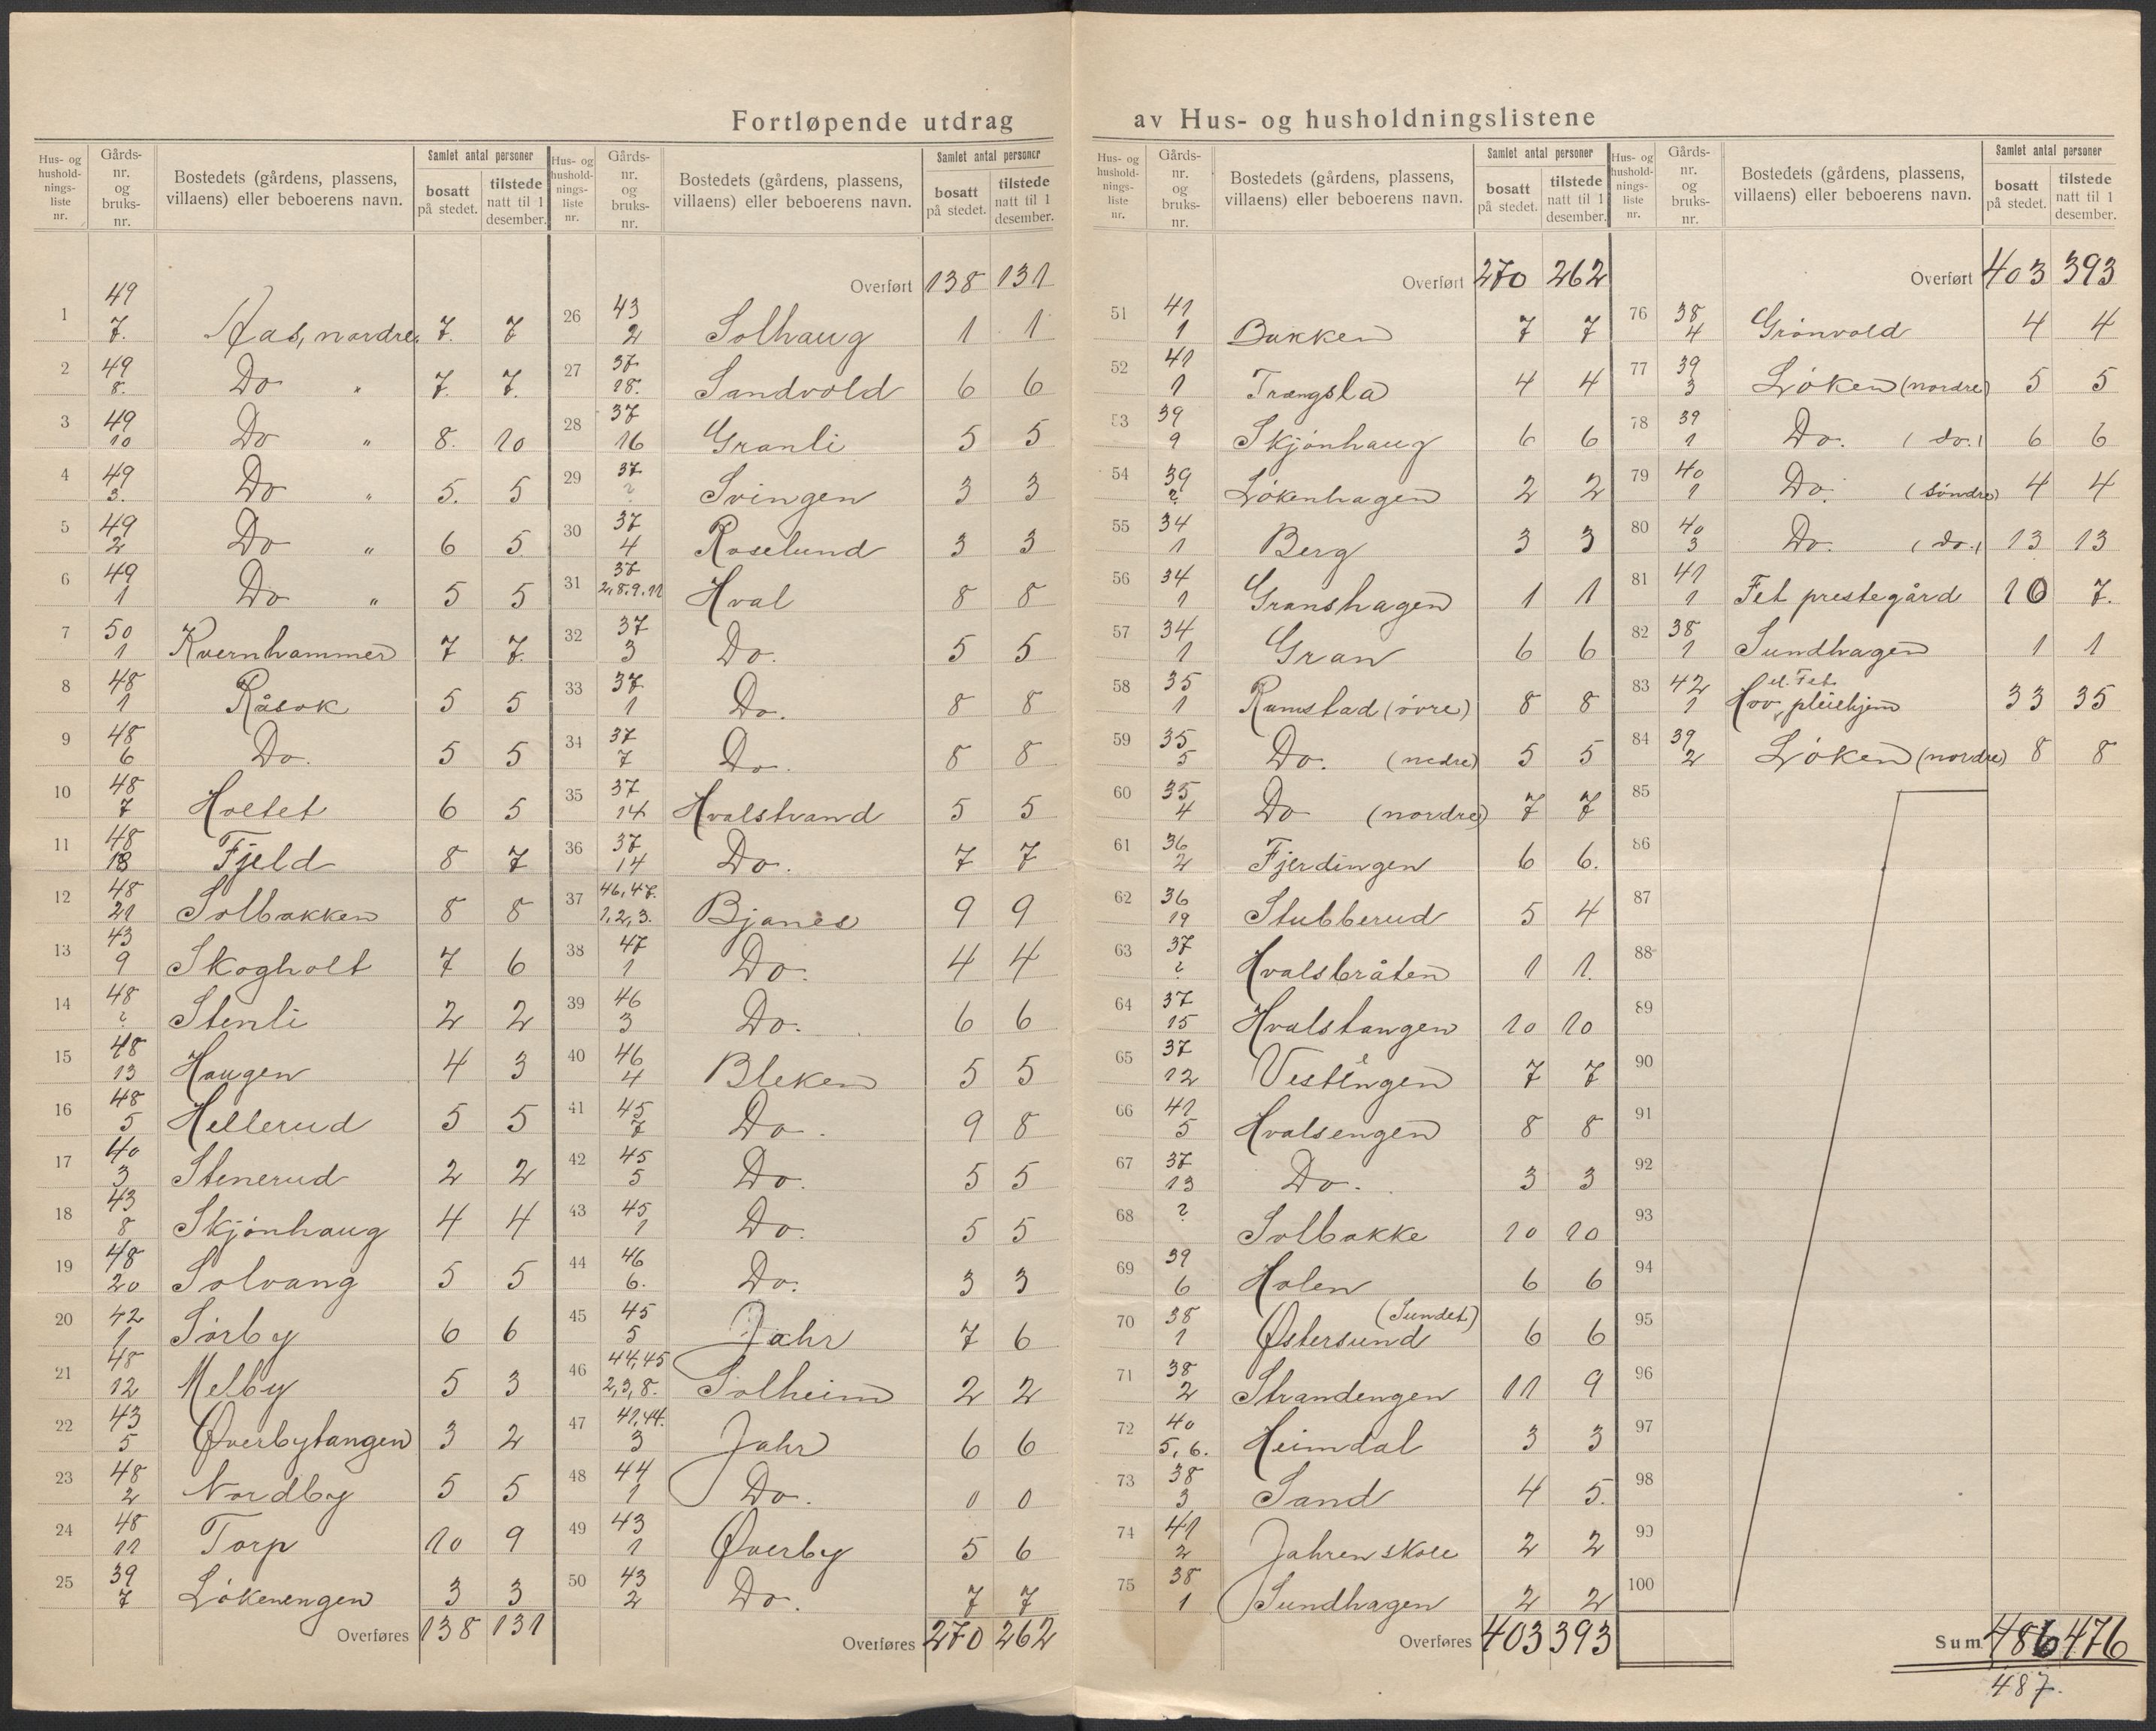 Fortløpende utdrag av Hus- og husholdningslistene
Hus- og hushold- nings- liste nr. | Gårds- nr. og bruks- nr. | Bostedets (gårdens, plassens, villaens) eller beboerens navn. | Samlet antal personer bosatt på stedet. | tilstede natt til 1 desember.
1 | 49 7. | Aas, nordre. | 7. | 7
2 | 49 8. | Do " | 7. | 7.
3 | 49 10 | Do " | 8. | 10
4 | 49 3. | Do " | 5. | 5
5 | 49 2 | Do " | 6 | 5
6 | 49 1 | Do " | 5 | 5
7 | 50 1 | Kvernhammer | 7 | 7.
8 | 48 1 | Råsok | 5 | 5
9 | 48 6 | Do. | 5 | 5
10 | 48 7 | Holtet | 6 | 5
11 | 48 18 | Fjeld | 8 | 7
12 | 48 21 | Solbakken | 8 | 8
13 | 43 9 | Skogholt | 7 | 6
14 | 48 ? | Stenli | 2 | 2
15 | 48 13 | Haugen | 4 | 3
16 | 48 5 | Hellerud | 5 | 5
17 | 40 3 | Stenerud | 2 | 2
18 | 43 8 | Skjönhaug | 4 | 4
19 | 48 20 | Solvang | 5 | 5
20 | 42 1 | Sörby | 6 | 6
21 | 48 12 | Melby | 5 | 3
22 | 43 5 | Øverbytangen | 3 | 2
23 | 48 2 | Nordby | 5 | 5
24 | 48 11 | Torp | 10 | 9
25 | 39 7 | Lökenengen | 3 | 3
Overføres 138 131
Hus- og hushold- nings- liste nr. | Gårds- nr. og bruks- nr. | Bostedets (gårdens, plassens, villaens) eller beboerens navn. | Samlet antal personer bosatt på stedet. | tilstede natt til 1 desember.
Overført 138 131
26 | 43 2 | Solhaug | 1 | 1
27 | 37 18. | Sandvold | 6 | 6
28 | 37 16 | Granli | 5 | 5
29 | 37 ? | Svingen | 3 | 3
30 | 37 4 | Roselund | 3 | 3
31 | 37 2,8.9.11 | Hval | 8 | 8
32 | 37 3 | Do. | 5 | 5
33 | 37 1 | Do. | 8 | 8
34 | 37 7 | Do. | 8 | 8
35 | 37 14 | Hvalstrand | 5 | 5
36 | 37 14 | Do. | 7 | 7
37 | 46,47. 1,2,3. | Bjanes | 9 | 9
38 | 47 1 | Do. | 4 | 4
39 | 46 3 | Do. | 6 | 6
40 | 46 4 | Bleken | 5 | 5
41 | 45 7 | Do. | 9 | 8
42 | 45 5 | Do. | 5 | 5
43 | 45 1 | Do. | 5 | 5
44 | 46 6. | Do. | 3 | 3
45 | 45 5 | Jahr | 7 | 6
46 | 44,45 2,3,8. | Solheim | 2 | 2
47 | 41,44. 3 | Jahr | 6 | 6
48 | 44 1 | Do. | 0 | 0
49 | 43 1 | Øverby | 5 | 6
50 | 43 2 | Do. | 7 | 7
Overføres 270 262
Hus- og hushold- nings- liste nr. | Gårds- nr. og bruks- nr. | Bostedets (gårdens, plassens, villaens) eller beboerens navn. | Samlet antal personer bosatt på stedet. | tilstede natt til 1 desember.
Overført 270 262
51 | 41 1 | Bakken | 7 | 7
52 | 41 1 | Trængsla | 4 | 4
53 | 39 9 | Skjönhaug | 6 | 6
54 | 39 ? | Lökenhagen | 2 | 2
55 | 34 1 | Berg | 3 | 3
56 | 34 1 | Granshagen | 1 | 1
57 | 34 1 | Gran | 6 | 6
58 | 35 1 | Ramstad (övre) | 8 | 8
59 | 35 5 | Do. (nedre) | 5 | 5
60 | 35 4 | Do (nordre) | 7 | 7
61 | 36 2 | Fjerdingen | 6 | 6.
62 | 36 19 | Stubberud | 5 | 4
63 | 37 ? | Hvalsbråten | 1 | 1.
64 | 37 15 | Hvalstangen | 10 | 10
65 | 37 12 | Vestengen | 7 | 7
66 | 41 5 | Hvalsengen | 8 | 8
67 | 37 13 | Do. | 3 | 3
68 | ? | Solbakke | 10 | 10
69 | 39 6 | Holen | 6 | 6
70 | 38 1 | Østersund (Sundet) | 6 | 6
71 | 38 2 | Strandengen | 11 | 9
72 | 40 5,6. | Heimdal | 3 | 3
73 | 38 3 | Sand | 4 | 5.
74 | 41 2 | Jahren skole | 2 | 2
75 | 38 1 | Sundhagen | 2 | 2
Overføres 403 393
Hus- og hushold- nings- liste nr. | Gårds- nr. og bruks- nr. | Bostedets (gårdens, plassens, villaens) eller beboerens navn. | Samlet antal personer bosatt på stedet. | tilstede natt til 1 desember.
Overført 403 393
76 | 38 4 | Grönvold | 4 | 4
77 | 39 3 | Löken (nordre) | 5 | 5
78 | 39 1 | Do. (do.) | 6 | 6
79 | 40 1 | Do. (söndre) | 4 | 4
80 | 40 3 | Do. (do.) | 13 | 13
81 | 41 1 | Fet prestegård | 10 | 7.
82 | 38 1 | Sundhagen | 1 | 1
83 | 42 1 | Hov el. Fet pleiehjem | 33 | 35
84 | 39 2 | Löken (nordre) | 8 | 8
85
86
87
88
89
90
91
92
93
94
95
96
97
98
99
100
Sum 486 476
487.